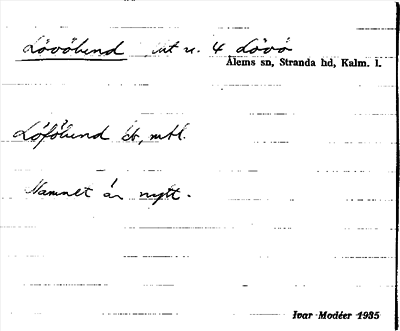 Lövölund utt u. 4 Lövö
Ålems sn, Stranda hd, Kalm. l.
Löfölund kt, mtl.
Namnet är nytt.
Ivar Modéer 1935